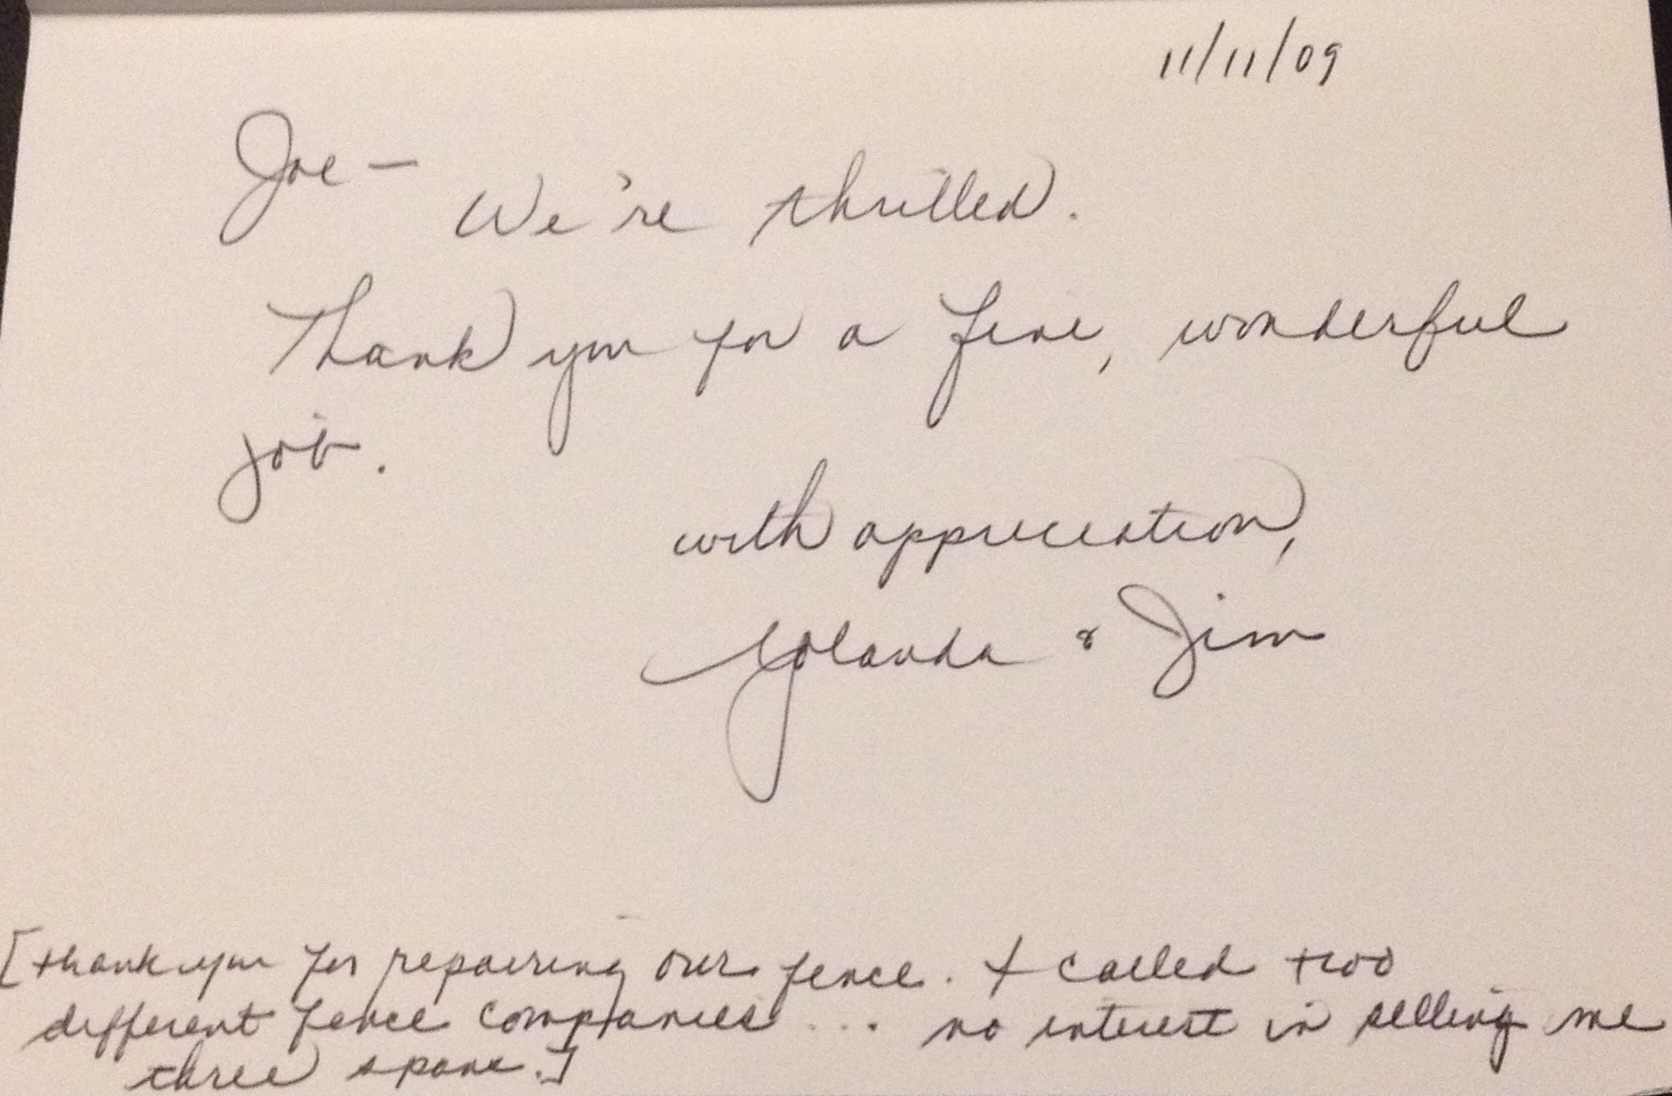 11/11/09
Joe —
We're thrilled.
Thank you for a fine, wonderful
job.
with appreciation,
Yolanda & Jim
[thank you for repairing our fence. I called two
different fence companies... no interest in selling me
three spans.]